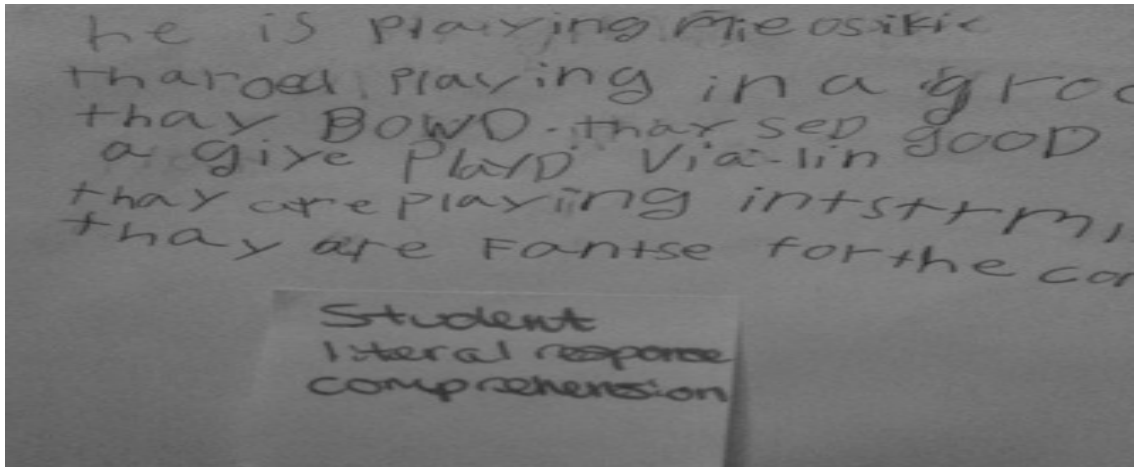 he is playing mieosikic
tharoed playing in a groo
thay BOWD. thay sed good
a giye PlayD Via-lin
thay are playing intsttrmi
thay are Fantse for the con
Student
literal response
comprehension